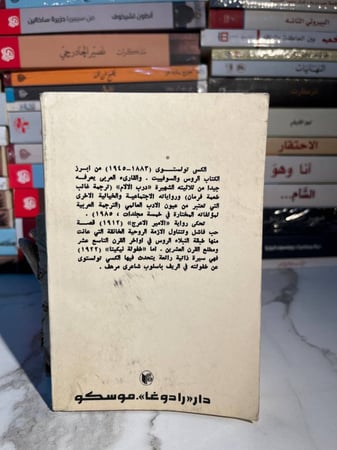 أنطون تشيخوف من سيبيريا جزيرة ساخالين
مذكرات نصير الجادرجي
البيروني
النهايات
الاحتقار
أنا وهوَ
الشّام...
الكسي تولستوي (١٨٨٣-١٩٤٥) من ابرز
الكتاب الروس والسوفييت . والقارىء العربي يعرفه
جيدا من ثلاثيته الشهيرة «درب الآلام» (ترجمة غائب
طعمة فرمان) ورواياته الاجتماعية والخيالية الاخرى
التي تعتبر من عيون الادب العالمي (الترجمة العربية
لمؤلفاته المختارة في خمسة مجلدات ، ١٩٨٥) .
تحكى رواية «الامير الاعرج» (١٩١٢) قصة
حب فاشل وتتناول الازمة الروحية الخانقة التي عانت
منها طبقة النبلاء الروس في اواخر القرن التاسع عشر
ومطلع القرن العشرين . اما «طفولة نيكيتا» (١٩٢٢)
فهي سيرة ذاتية رائعة يتحدث فيها الكسي تولستوي
عن طفولته في الريف باسلوب شاعري مرهف .
دار «رادوغا» . موسكو